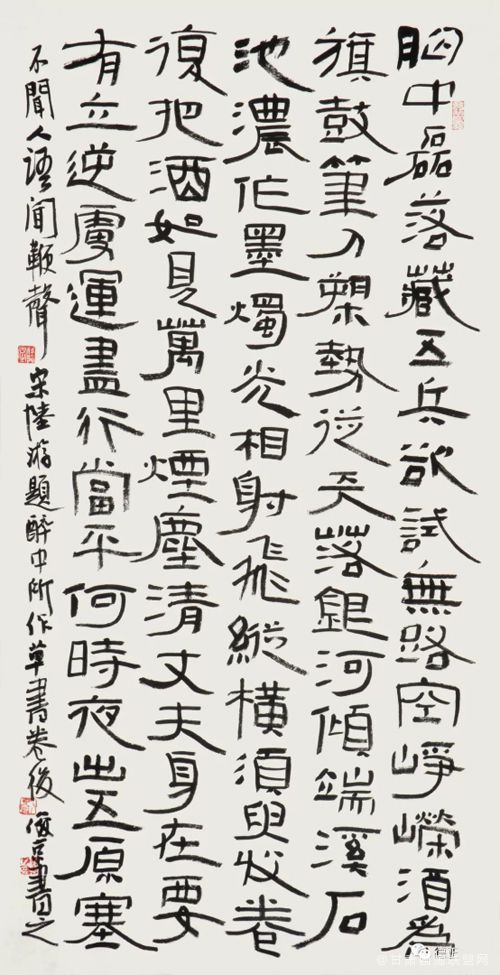 胸中磊落藏五兵欲試無路空崢嶸酒為
旗鼓筆刀槊勢從天落銀河傾端溪石
池濃作墨燭光相射飛縱橫須臾收卷
復把酒如見萬里煙塵清丈夫身在要
有立逆虜運盡行當平何時夜出五原塞
不聞人語聞鞭聲 宋陸游題醉中所作草書卷後 書之